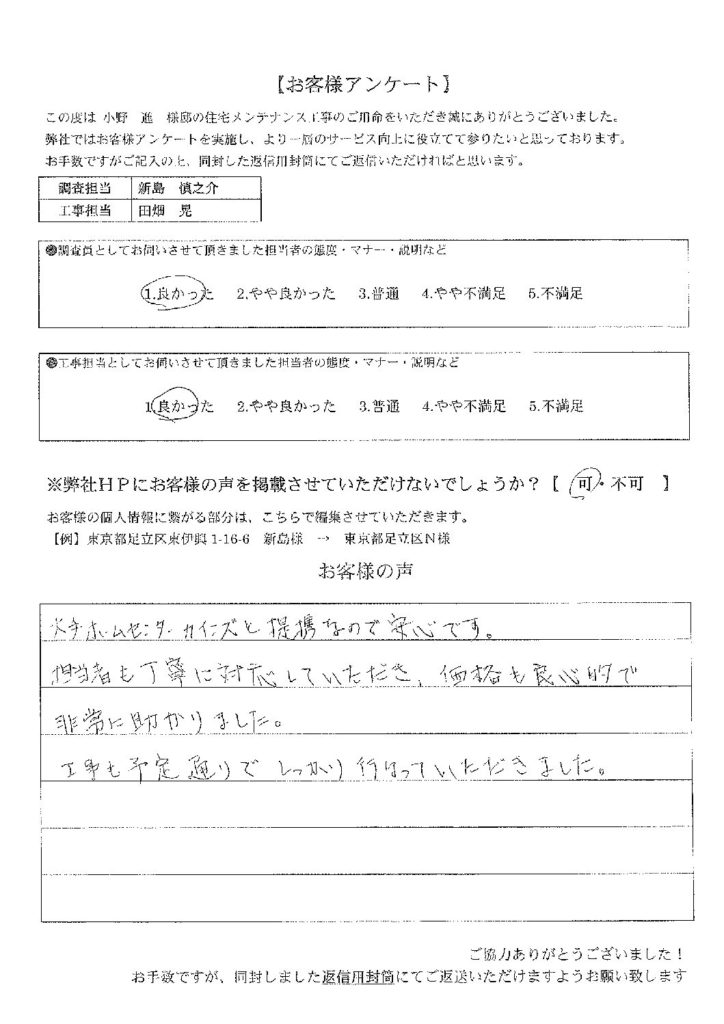 【お客様アンケート】
この度は 小野 進 様邸の住宅メンテナンス工事のご用命をいただき誠にありがとうございました。
弊社ではお客様アンケートを実施し、より一層のサービス向上に役立てて参りたいと思っております。
お手数ですがご記入の上、同封した返信用封筒にてご返信いただければと思います。
調査担当 新島 慎之介
工事担当 田畑 晃
調査員としてお伺いさせて頂きました担当者の態度・マナー・説明など
1.良かった 2.やや良かった 3.普通 4.やや不満足 5.不満足
工事担当としてお伺いさせて頂きました担当者の態度・マナー・説明など
1.良かった 2.やや良かった 3.普通 4.やや不満足 5.不満足
※弊社HPにお客様の声を掲載させていただけないでしょうか？【 可・不可 】
お客様の個人情報に繋がる部分は、こちらで編集させていただきます。
【例】東京都足立区東伊興1-16-6 新島様 → 東京都足立区N様
お客様の声
大手ホームセンターカインズと提携なので安心です。
担当者も丁寧に対応していただき、価格も良心的で
非常に助かりました。
工事も予定通りでしっかり行なっていただきました。
ご協力ありがとうございました！
お手数ですが、同封しました返信用封筒にてご返送いただけますようお願い致します